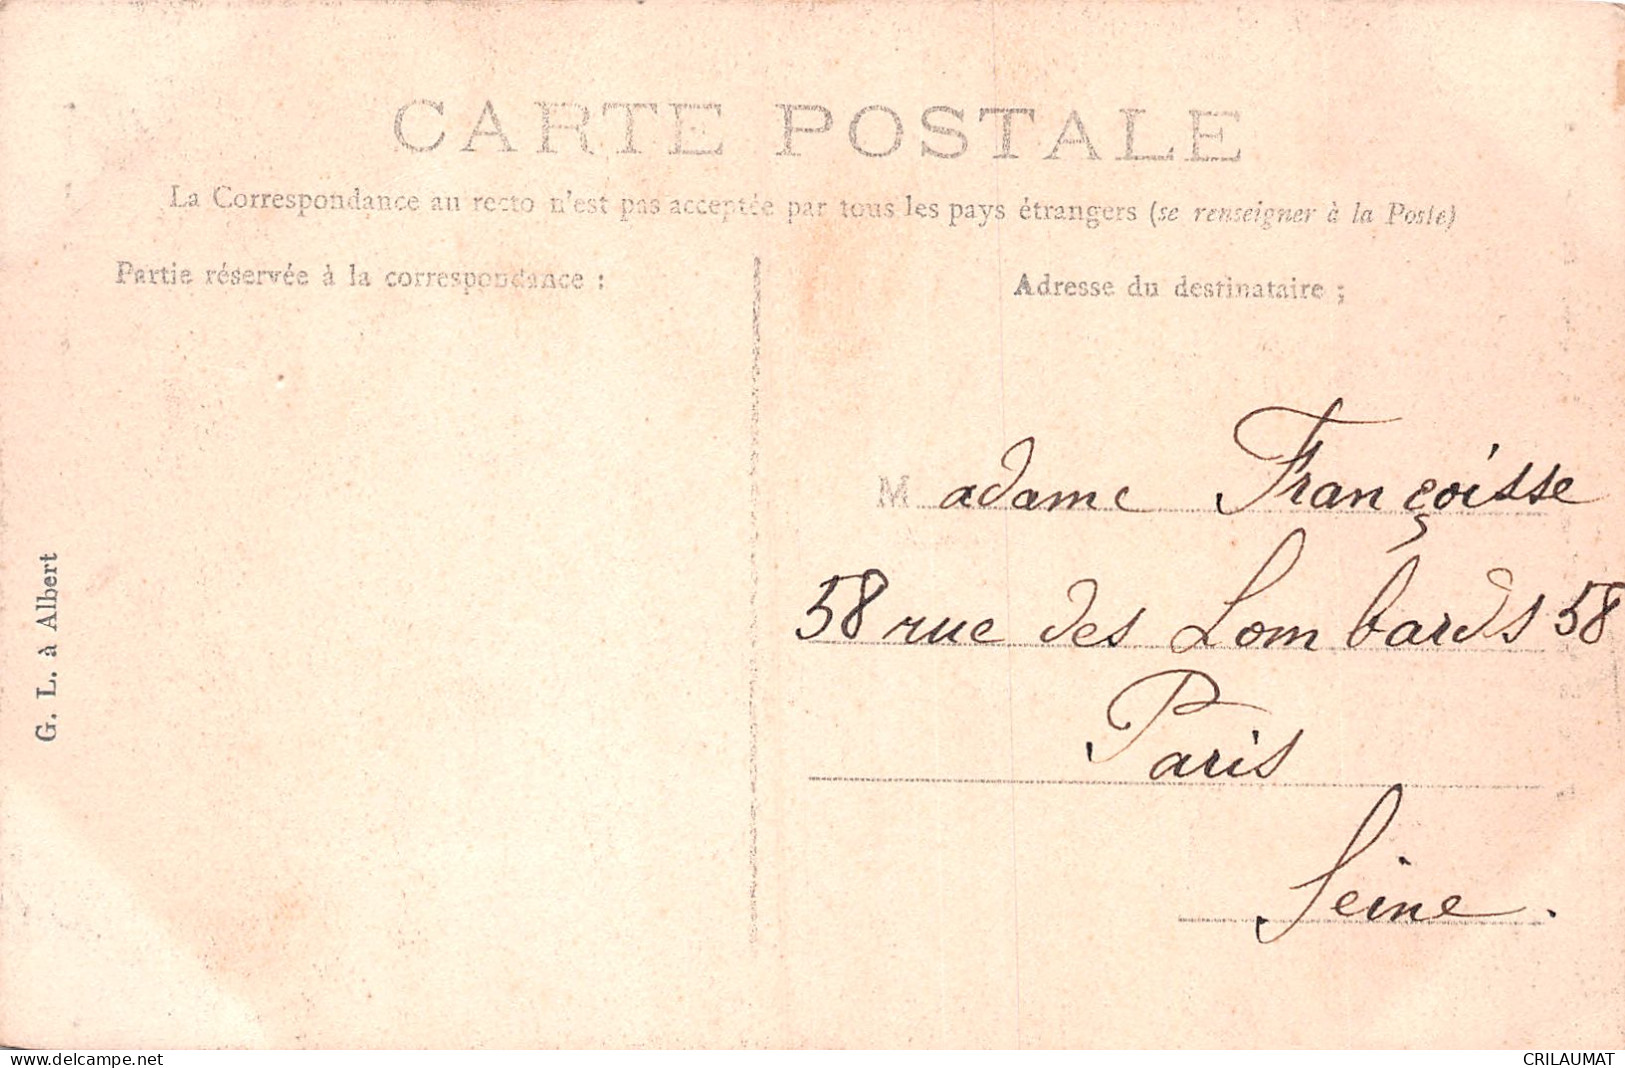 CARTE POSTALE
La Correspondance au recto n'est pas acceptée par tous les pays étrangers (se renseigner à la Poste)
Partie réservée à la correspondance :
Adresse du destinataire ;
Madame Françoisse
58 rue des Lombards 58
Paris
Seine.
G. L. à Albert
www.delcampe.net
CRILAUMAT